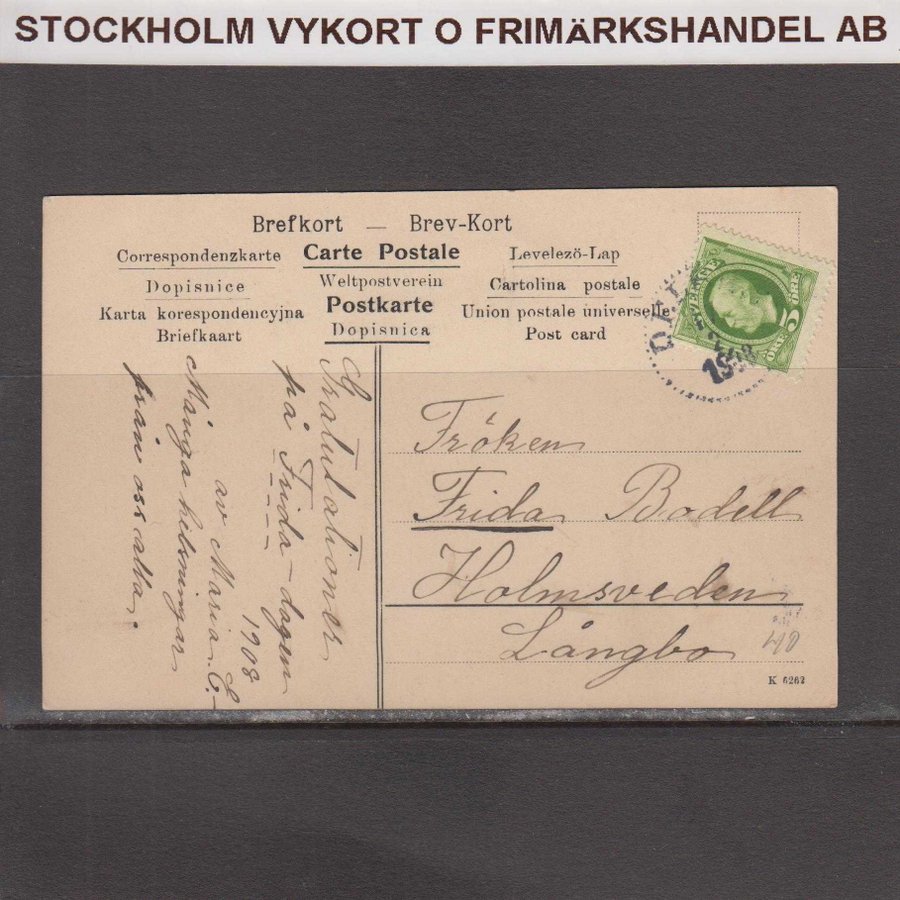 STOCKHOLM VYKORT O FRIMÄRKSHANDEL AB
Brefkort — Brev-Kort
Correspondenzkarte Carte Postale Levelezö-Lap
Dopisnice Weltpostverein Cartolina postale
Karta korespondencyjna Postkarte Union postale universelle
Briefkaart Dopisnica Post card
SVERIGE
5
ÖRE
1908
Gratulationer
på Frida-dagen
1908
av Maria E.
Många helsningar
från oss alla.
Fröken
Frida Bodell
Holmsveden
Långbo
40
K 6262